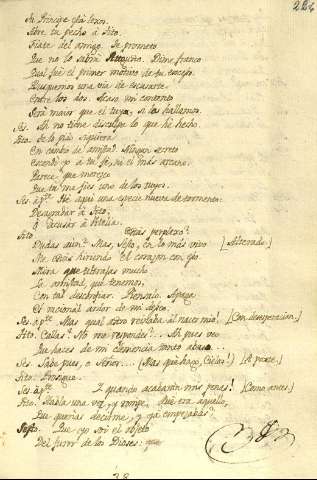 Tu Principe está lexos.
Abre tu pecho à Tito.
Fiate del amigo. Te prometo
Que no lo sabrà Augusto. Dime franco
Qual fué el primer motivo de tu exceso.
Busquemos una via de escusarte
Entre los dos. Acaso mi contento
Será maior que el tuyo, si la hallamos.
Ses. Ah no tiene disculpa lo que hè hecho.
Tito. la pido siquiera
En cambio de amistad. Ningun secreto
Escondi yo à tu fé, ni el mas arcano.
Parece que merezco
Que tu me fies uno de los tuyos.
Ses. apte. Hè aqui una especie nueva de tormento:
Desagradar à Tito;
ò acusar à Vitelia.
Tito Estàs perplexo?
Dudas aun? Mas, Sesto, en lo mas vivo [Alterado]
Me estàs hiriendo el corazon con eso.
Mira que ultrajas mucho
La amistad, que tenemos,
Con tal desconfiar. Piensalo. Apaga
El racional ardor de mi deseo.
Ses. apte. Mas qual astro reinaba al nacer mio! [Con desesperacion]
Tito. Callas? No me respondes? Ah pues veo
Que haces de mi clemencia tanto abuso
Ses. Sabe pues, o Señor... (Mas que hago, Cielos!) [A parte]
Tito. Prosigue.
Ses. apte. I quando acabaràn mis penas! [Como antes]
Tito. Habla una vez, y rompe. Què era aquello,
Que querias decirme, y yà empezabas?
Sesto. Que yo soi el objeto
Del furor de los Dioses: que